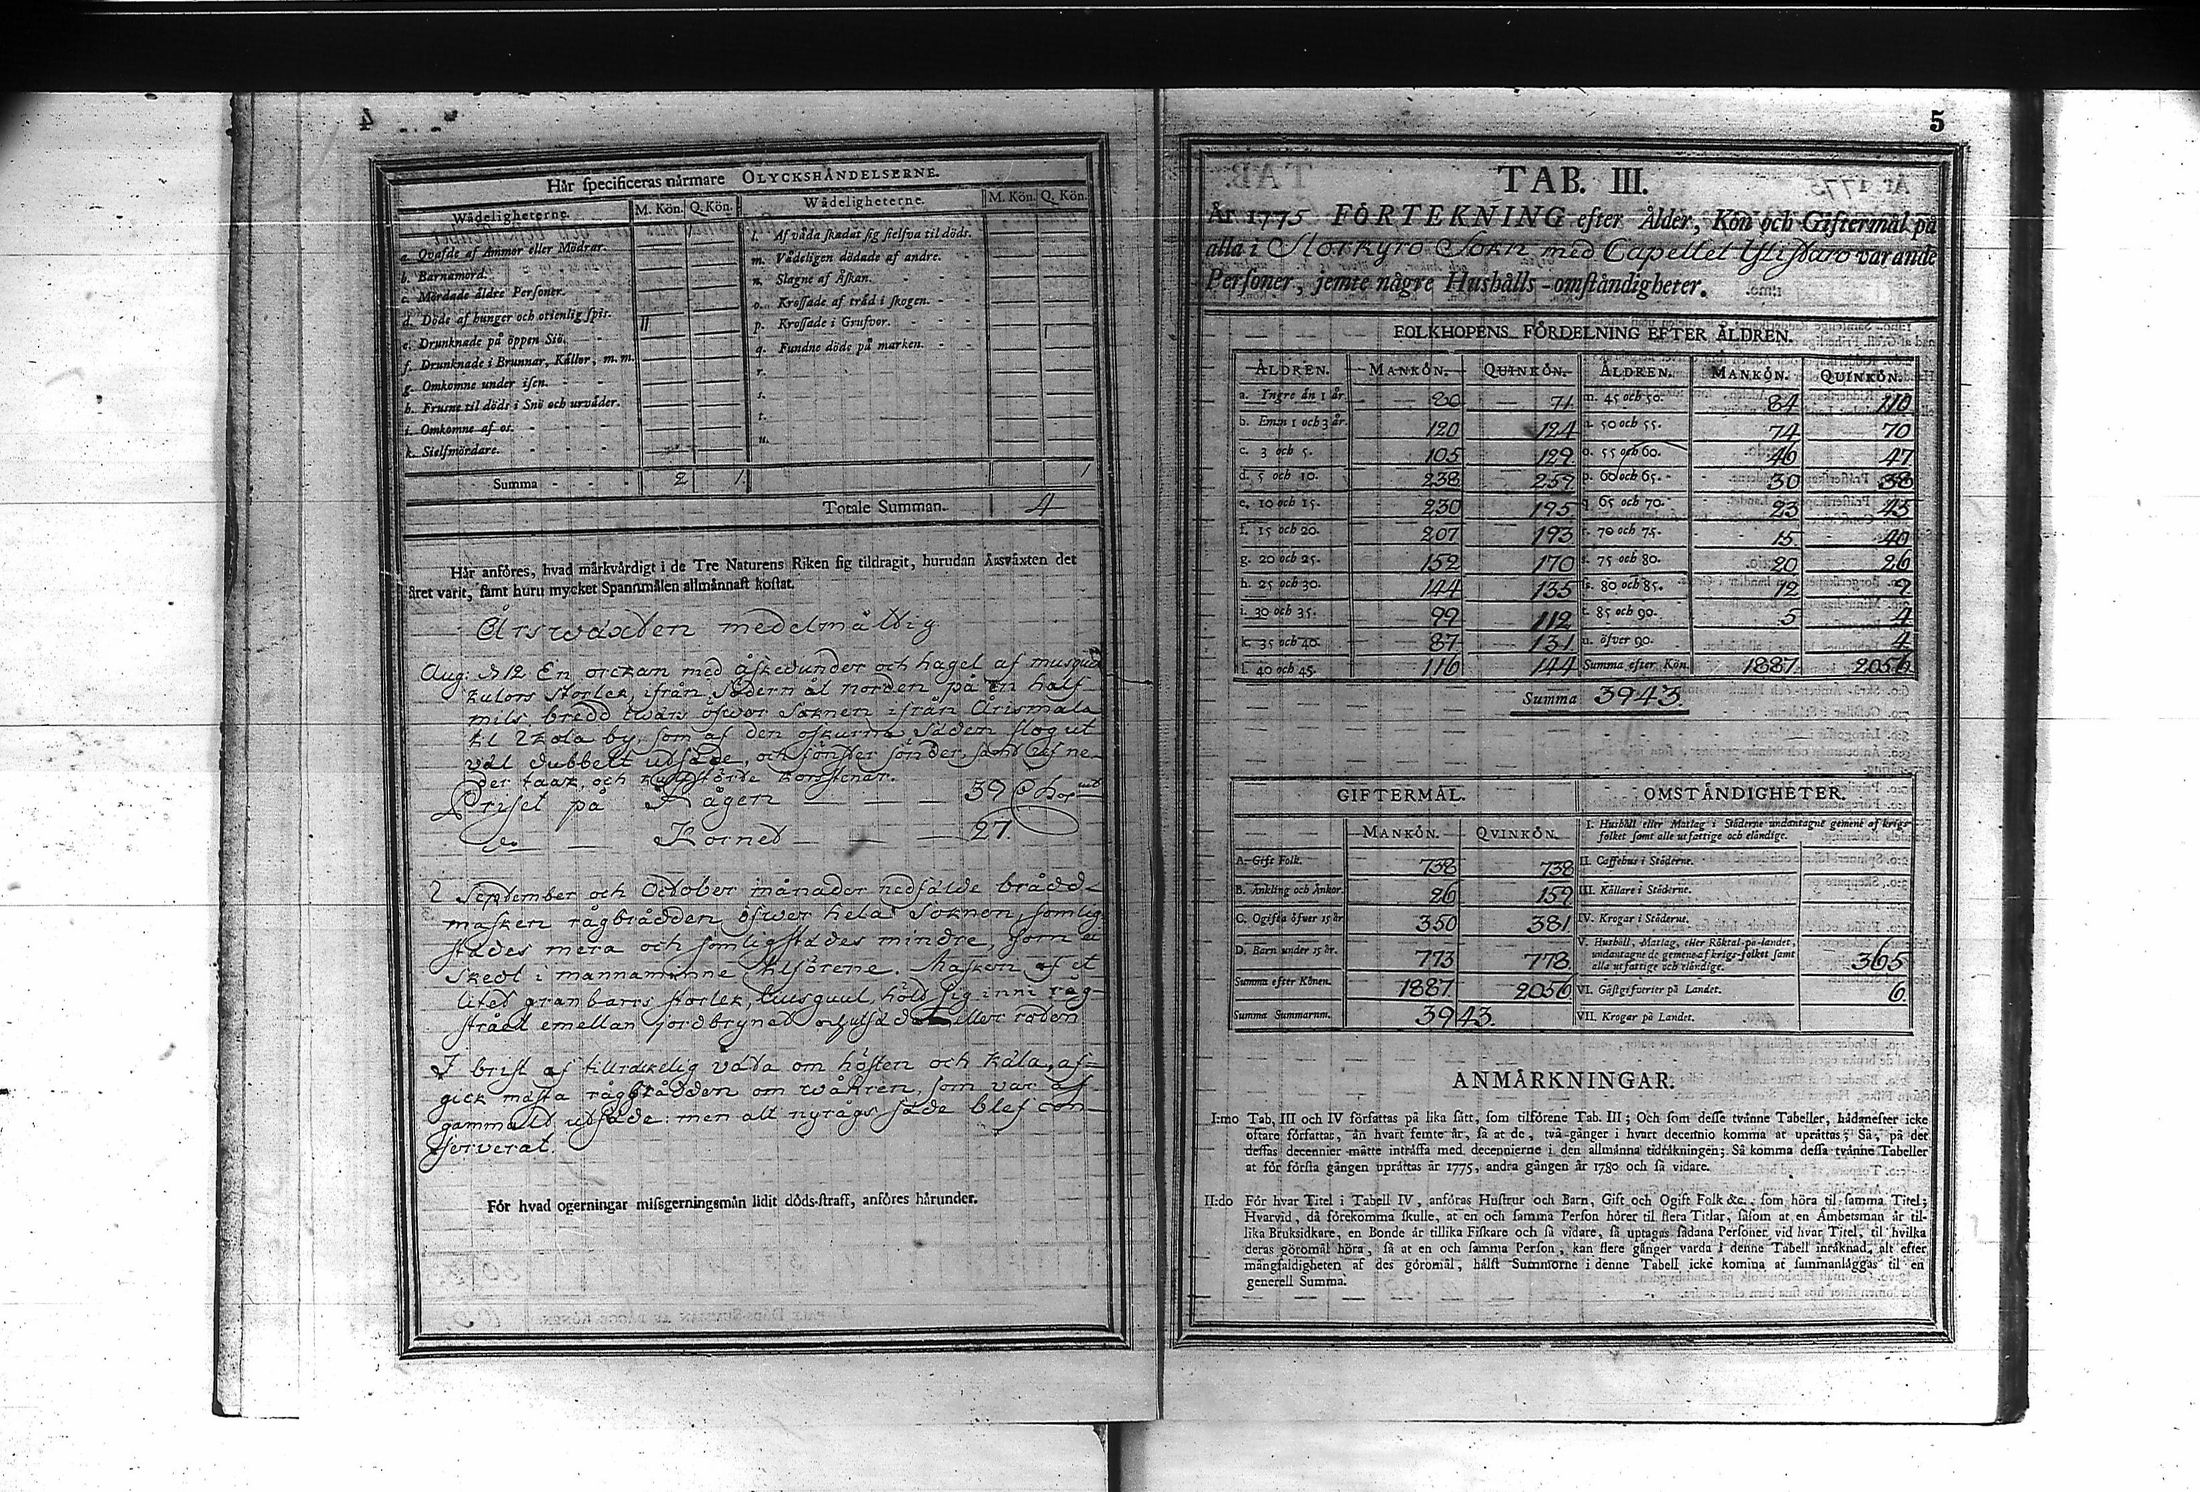 4
Här specificeras nårmare OLYCKSHÅNDELSERNE.
Wådeligheterne. M. Kön. Q. Kön. Wådeligheterne. M. Kön. Q. Kön.
a. Qvafde af Ammor eller Mödrar.
b. Barnamord.
c. Mördade äldre Personer.
d. Döde af hunger och otienlig spis. II
e. Drunknade på öppen Siö.
f. Drunknade i Brunnar, Källor, m. m.
g. Omkomne under isen.
h. Frusne til döds i Snö och urväder.
i. Omkomne af os.
k. Sielfmördare.
Summa 2 1
l. Af våda skadat sig sielfva til döds.
m. Vådeligen dödade af andre.
n. Slagne af Åskan.
o. Krossade af träd i skogen.
p. Krossade i Grufvor.
q. Fundne döde på marken. 1
r.
s.
t.
u.
1
Totale Summan. 4
Här anföres, hvad märkvärdigt i de Tre Naturens Riken sig tildragit, hurudan Årsväxten det
året varit, samt huru mycket Spannmålen allmännast kostat.
Årswäxten medelmåttig
Aug: d 12 En orckan med åskedunder och hagel af musquet
kulors storlek, ifrån södern åt norden på en half
mils bredd twärs öfwer Soknen ifrån Orismala
til by, som af den oskurna säden slog ut
väl dubbelt utsäde, och fönster sönder samt ref ne-
der taak, och kullstörde korstenar.
Priset på Rågen 39
Kornet 27
September och October månader nedfälde brådd-
masken rågbrådden öfwer hela Soknen, somlig
städes mera och somligstädes mindre, som ei
skedt i mannaminne tilförene. Masken af et
litet granbarrs storlek, liusguul, höld sig inni råg-
strået emellan jordbrynet och eller roten
I brist af tillräckelig väta om hösten och kåla, af-
gick mästa rågbrådden om wåhren, som var af
gammalt utsäde: men alt nyrågs säde blef con-
serverat.
För hvad ogerningar missgerningsmån lidit döds-straff, anföres härunder.
5
TAB. III.
År 1775 FÖRTEKNING efter Ålder, Kön och Giftermål på
alla i Storkyro Sokn med Capellet Ylistaro varande
Personer, jemte någre Hushålls-omständigheter.
FOLKHOPENS FÖRDELNING EFTER ÅLDREN.
ÅLDREN. MANKÖN. QUINKÖN. ÅLDREN. MANKÖN. QUINKÖN.
a. Yngre än 1 år. 80 71 m. 45 och 50. 84 110
b. Emm 1 och 3 år. 120 124 n. 50 och 55. 74 70
c. 3 och 5. 105 129 o. 55 och 60. 46 47
d. 5 och 10. 238 259 p. 60 och 65. 30 38
e. 10 och 15. 230 195 q. 65 och 70. 23 45
f. 15 och 20. 207 193 r. 70 och 75. 15 40
g. 20 och 25. 152 170 s. 75 och 80. 20 26
h. 25 och 30. 144 135 ss. 80 och 85. 12 9
i. 30 och 35. 99 112 t. 85 och 90. 5 4
k. 35 och 40. 87 131 u. öfver 90. 4
l. 40 och 45. 116 144 Summa efter Kön. 1887. 2056
Summa 3943.
GIFTERMÅL. OMSTÄNDIGHETER.
MANKÖN. QVINKÖN.
A. Gift Folk. 738 738
B. Änkling och Änkor. 26 159
C. Ogifta öfver 15 år 350 381
D. Barn under 15 år. 773 778
Summa efter Könen. 1887. 2056
Summa Summarum. 3943.
I. Hushåll eller Matlag i Städerne undantagne gemene af krigs-
folket samt alle utfattige och eländige.
II. Caffehus i Städerne.
III. Källare i Städerne.
IV. Krogar i Städerne.
V. Hushåll, Matlag, eller Röktal på landet,
undantagne de gemene af krigs-folket samt
alla utfattige och eländige. 365
VI. Gästgifverier på Landet. 6
VII. Krogar på Landet.
ANMÄRKNINGAR.
I:mo Tab. III och IV författas på lika sätt, som tilförene Tab. III; Och som desse tvånne Tabeller, hädanefter icke
oftare författas, än hvart femte år, så at de, två gånger i hvart decennio komma at uprättas; Så, på det
dessas decennier måtte inträffa med decennierne i den allmänna tidräkningen; Så komma dessa tvånne Tabeller
at för första gången uprättas år 1775, andra gången år 1780 och så vidare.
II:do För hvar Titel i Tabell IV, anföras Hustrur och Barn, Gift och Ogift Folk &c. som höra til samma Titel;
Hvarvid, då förekomma skulle, at en och samma Person hörer til flera Titlar, såsom at en Ämbetsman är til-
lika Bruksidkare, en Bonde är tillika Fiskare och så vidare, så uptagas sådana Personer vid hvar Titel, til hvilka
deras göromål höra, så at en och samma Person, kan flere gånger varda i denne Tabell inräknad, alt efter
mångfaldigheten af des göromål, hälst Summorne i denne Tabell icke komma at sammanläggas til en
generell Summa.